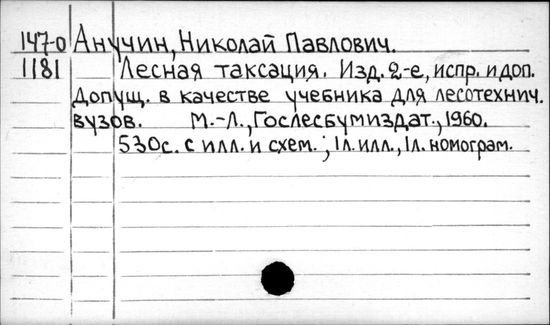 147-0 Анучин, Николай Павлович.
1181 Лесная таксация. Изд. 2-е, испр. и доп.
Допущ. в качестве учебника для лесотехнич.
вузов. М.-Л., Гослесбумиздат., 1960.
530с. с илл. и схем.; 1л. илл., 1л. номограм.